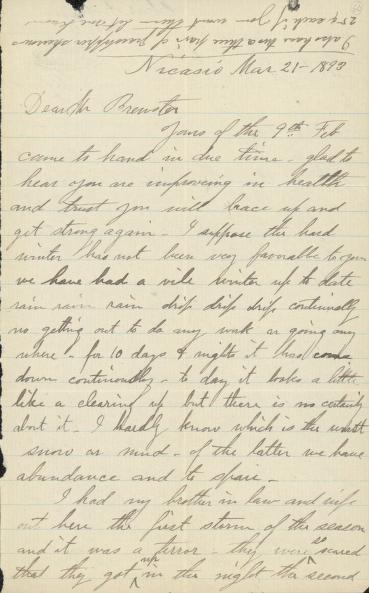 I also have two or three pair of grasshopper sparrows
25¢ each if you want them let me know
Nicasio Mar 21 - 1893
Dear Mr Brewster
Yours of the 9th Feb
came to hand in due time - glad to
hear you are improveing in health
and trust you will brace up and
get strong again - I suppose the hard
winter has not been very favorable to you
we have had a vile winter up to date
rain rain rain drip drip drip continually
no getting out to do any work or going any
where - for 10 days & nights it has come
down continously - to day it looks a little
like a clearing up but there is no certainty
about it - I hardly know which is the worst
snow or mud - of the latter we have
abundance and to spare -
I had my brother in law and wife
out here the first storm of the season
and it was a terror - they were so scared
that they got up in the night the second